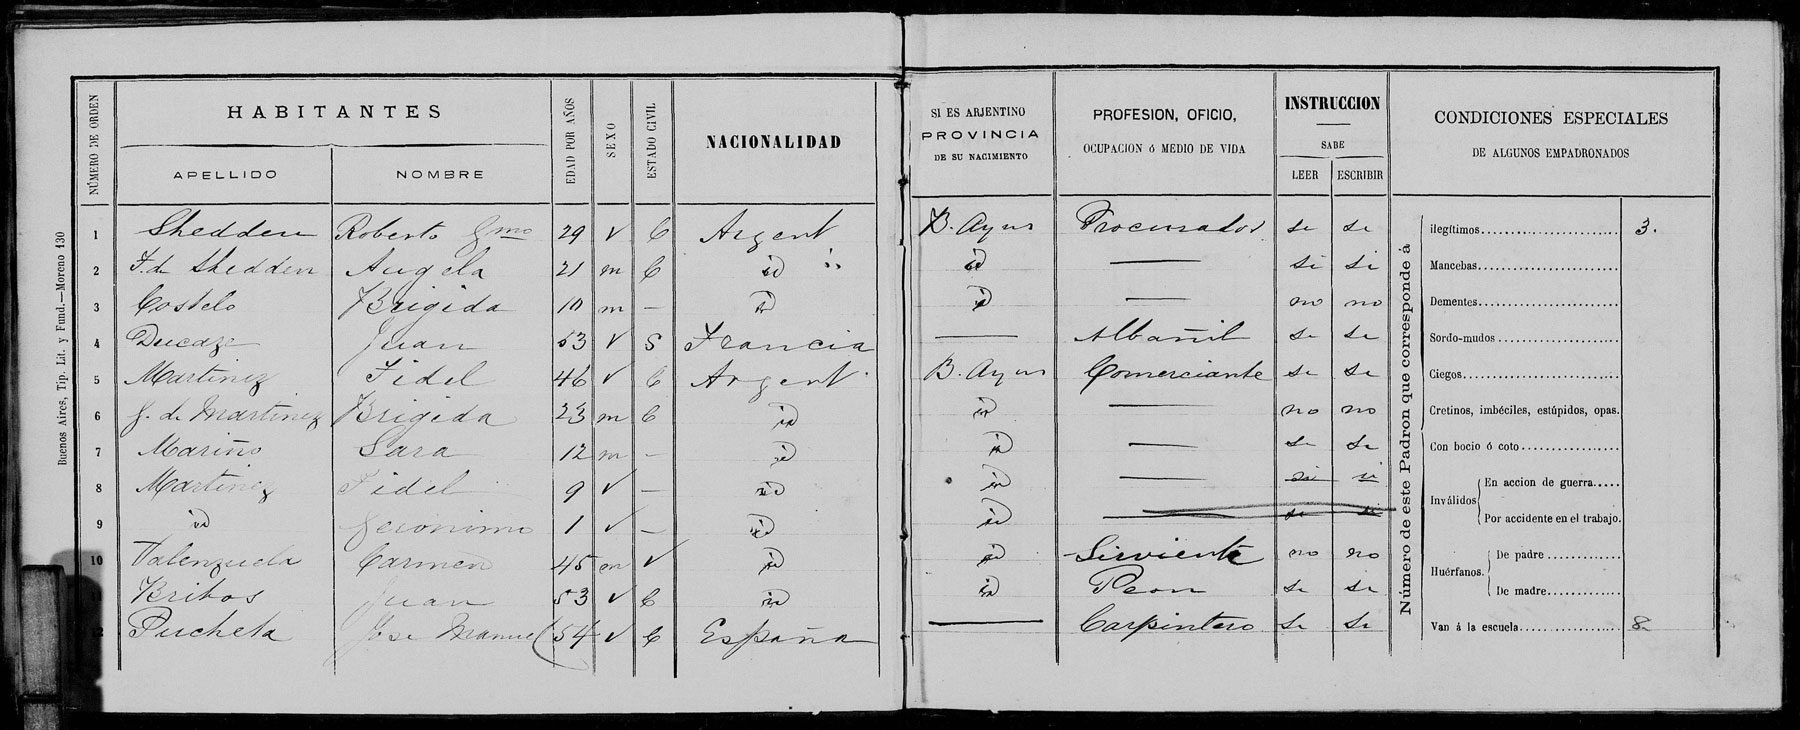 Buenos Aires, Tip. Lit. y Fund.—Moreno 130
NÚMERO DE ORDEN
HABITANTES
APELLIDO NOMBRE
EDAD POR AÑOS
SEXO
ESTADO CIVIL
NACIONALIDAD
SI ES ARJENTINO
PROVINCIA
DE SU NACIMIENTO
PROFESION, OFICIO,
OCUPACION ó MEDIO DE VIDA
INSTRUCCION
SABE
LEER ESCRIBIR
CONDICIONES ESPECIALES
DE ALGUNOS EMPADRONADOS
1 Shedden Roberto Gmo 29 v C Argent B. Ayres Procurador si si
2 F. de Shedden Angela 21 m C id id — si si
3 Costelo Brigida 10 m — id id — no no
4 Ducaze Juan 53 v S Francia — Albañil si si
5 Martinez Fidel 46 v C Argent B. Ayres Comerciante si si
6 G. de Martinez Brigida 23 m C id id — no no
7 Mariño Sara 12 m — id id — si si
8 Martinez Fidel 9 v — id id — si si
9 id Geronimo 1 v — id id — si si
10 Valenzuela Carmen 45 m v id id Sirviente no no
11 Bribos Juan 53 v C id id Peon si si
12 Pucheta Jose Manuel 54 v C España — Carpintero si si
Número de este Padron que corresponde á
ilegítimos 3.
Mancebas
Dementes
Sordo-mudos
Ciegos
Cretinos, imbéciles, estúpidos, opas.
Con bocio ó coto
Inválidos
En accion de guerra
Por accidente en el trabajo.
Huérfanos.
De padre
De madre
Van á la escuela 8